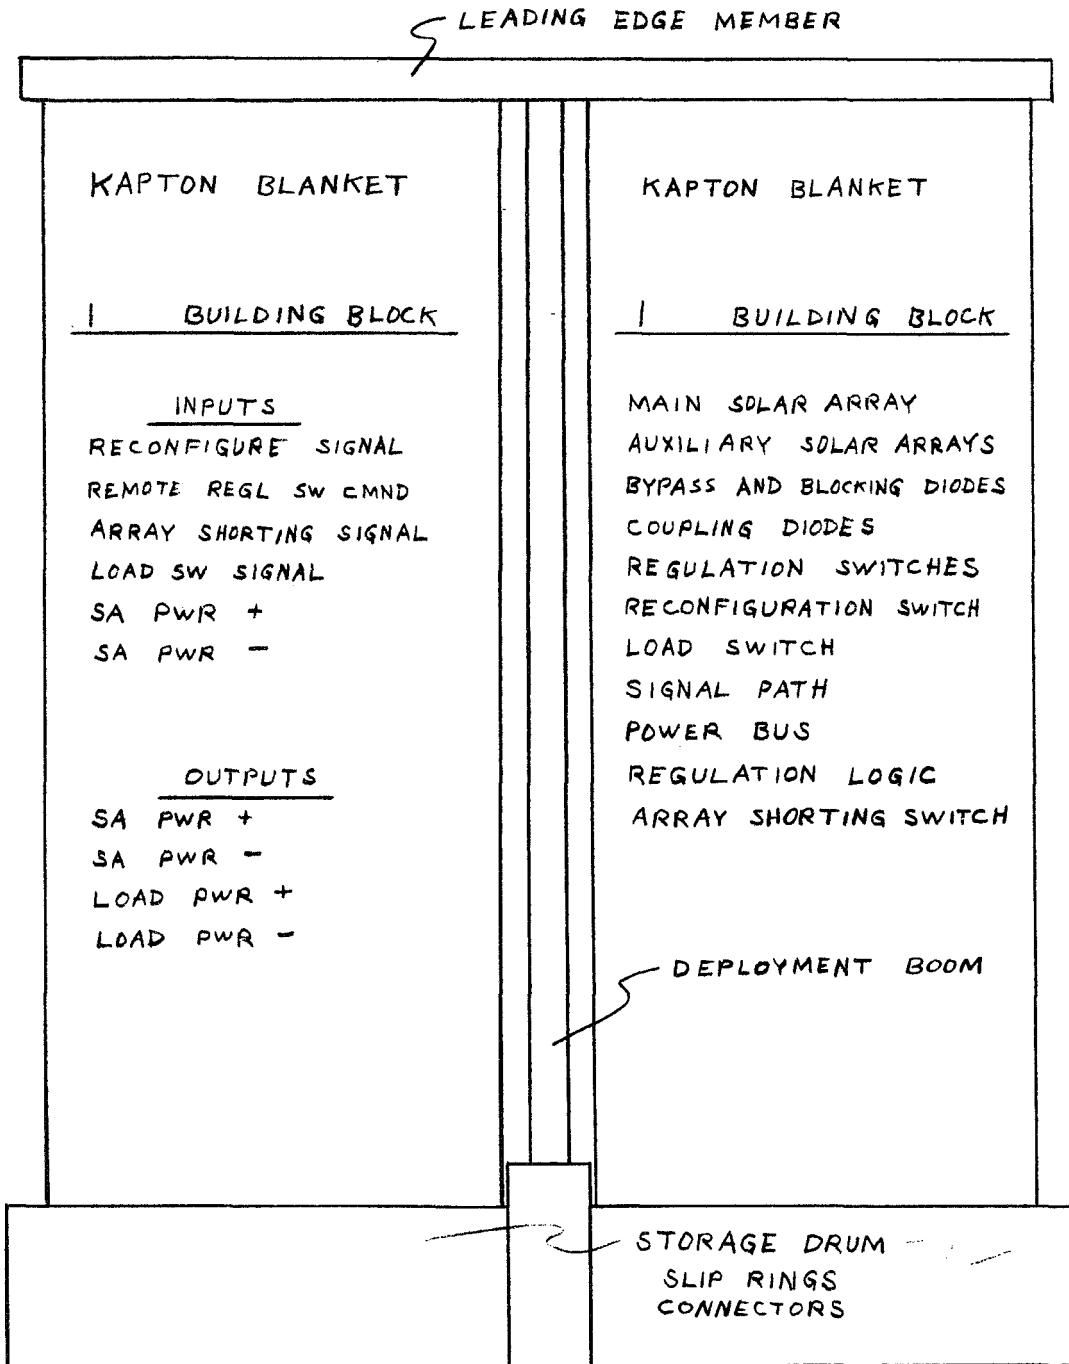 LEADING EDGE MEMBER
KAPTON BLANKET
1 BUILDING BLOCK
INPUTS
RECONFIGURE SIGNAL
REMOTE REGL SW CMND
ARRAY SHORTING SIGNAL
LOAD SW SIGNAL
SA PWR +
SA PWR -
OUTPUTS
SA PWR +
SA PWR -
LOAD PWR +
LOAD PWR -
KAPTON BLANKET
1 BUILDING BLOCK
MAIN SOLAR ARRAY
AUXILIARY SOLAR ARRAYS
BYPASS AND BLOCKING DIODES
COUPLING DIODES
REGULATION SWITCHES
RECONFIGURATION SWITCH
LOAD SWITCH
SIGNAL PATH
POWER BUS
REGULATION LOGIC
ARRAY SHORTING SWITCH
DEPLOYMENT BOOM
STORAGE DRUM
SLIP RINGS
CONNECTORS